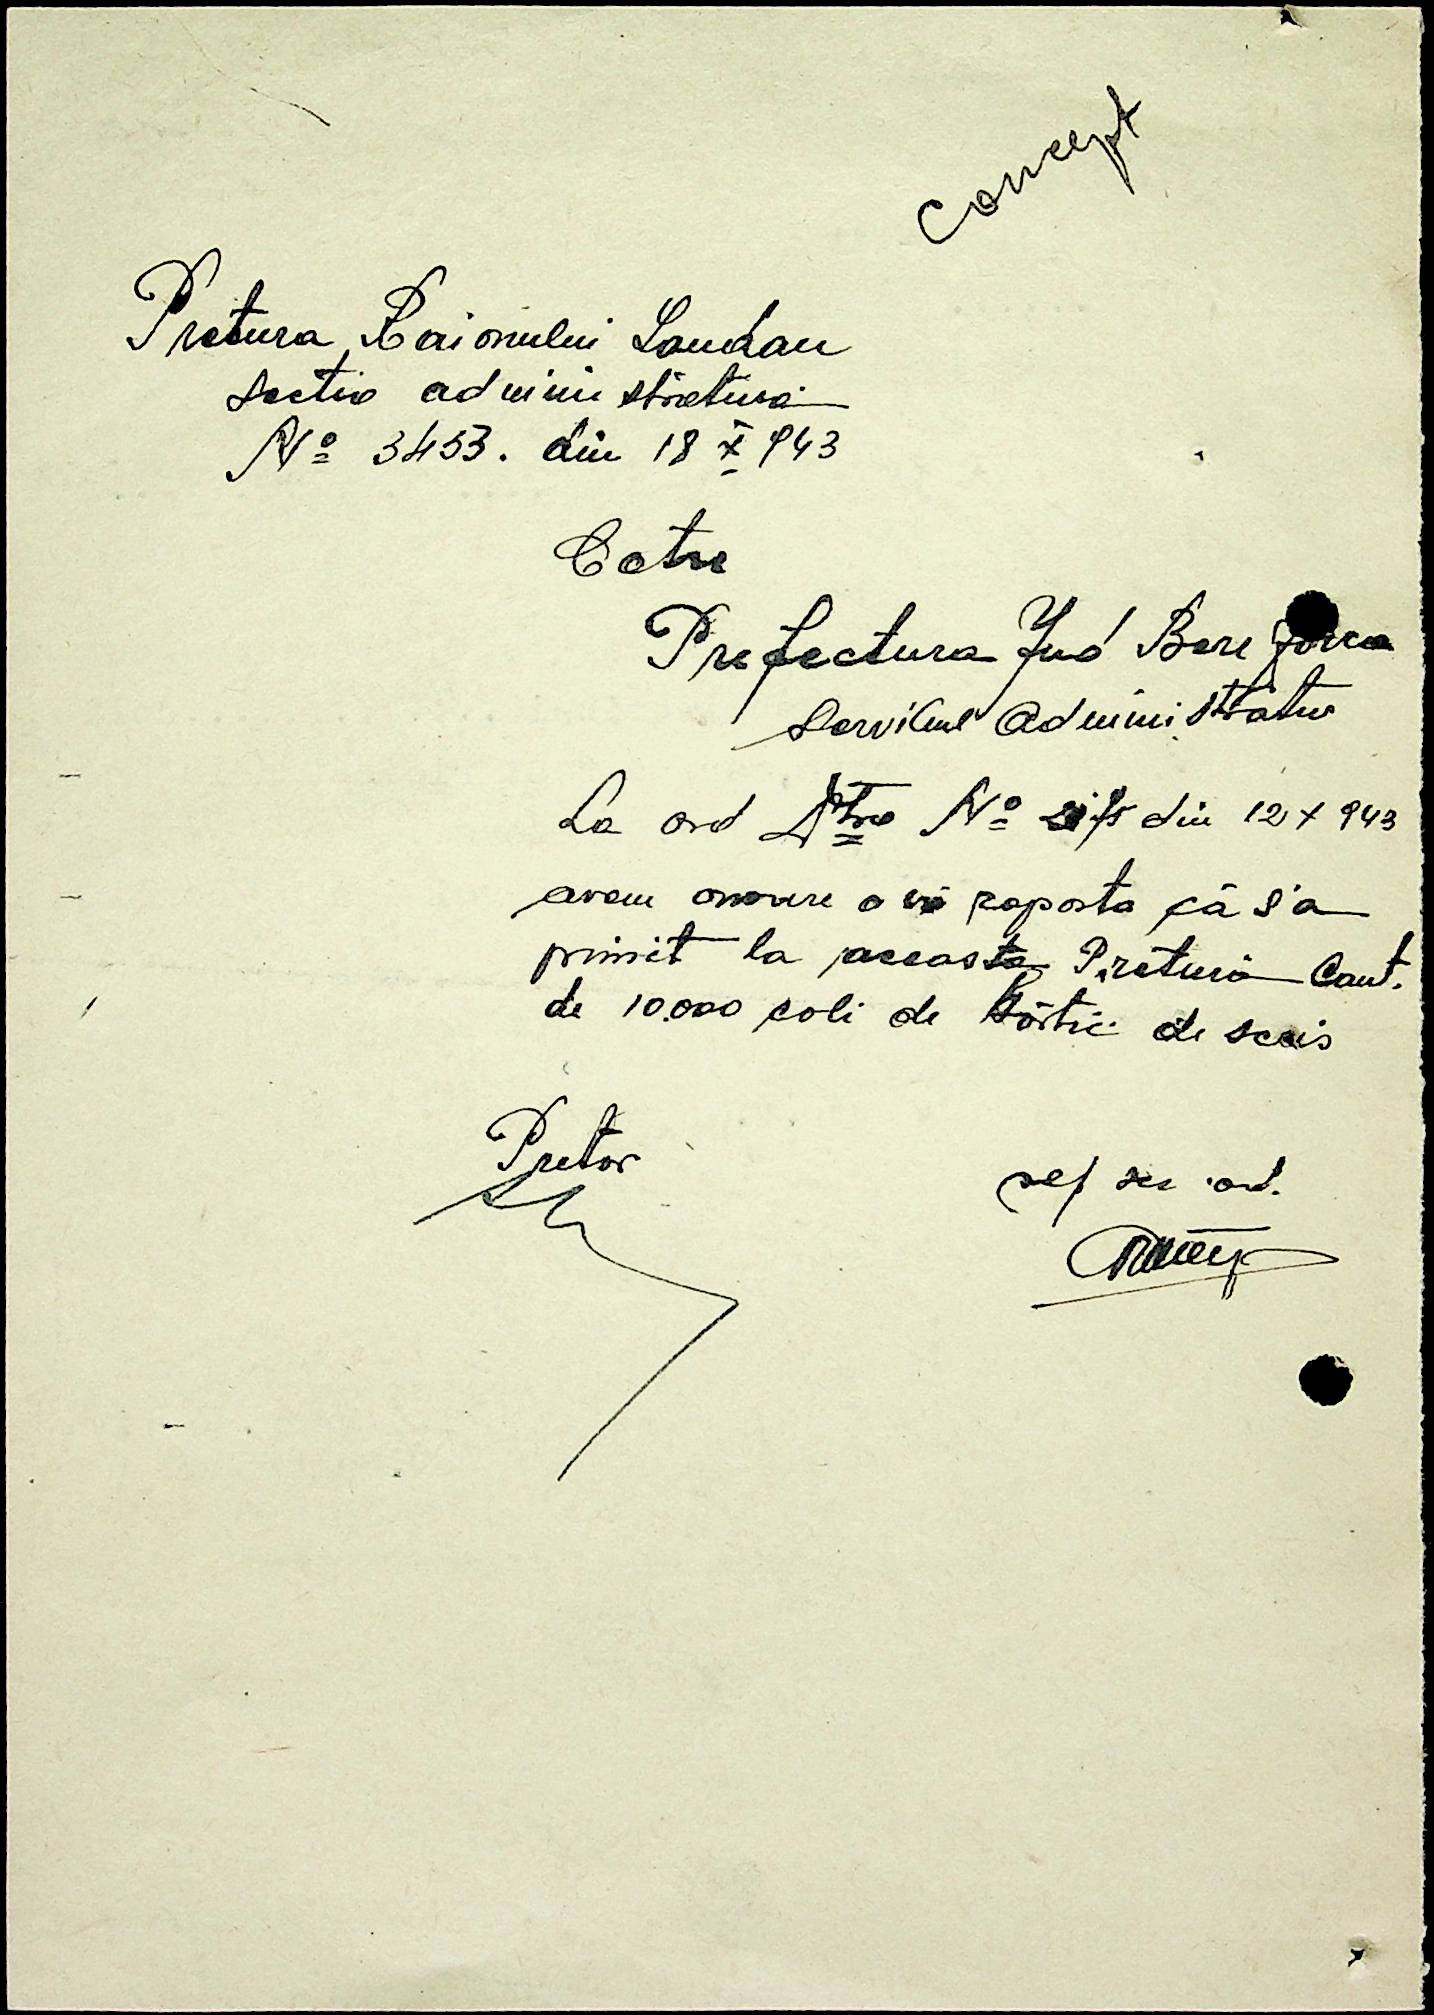 Concept
Pretura Raionului Landau
Sectia administrativă
Nº 3453. din 18 X 943
Catre
Prefectura Jud Berezovca
Serviciul Administrativ
La ord Dtră Nº din 12 X 943
avem onoare a vă raporta că s'a
primit la aceasta Pretură Cant.
de 10.000 coli de hârtie de scris
Pretor
șef sec ad.